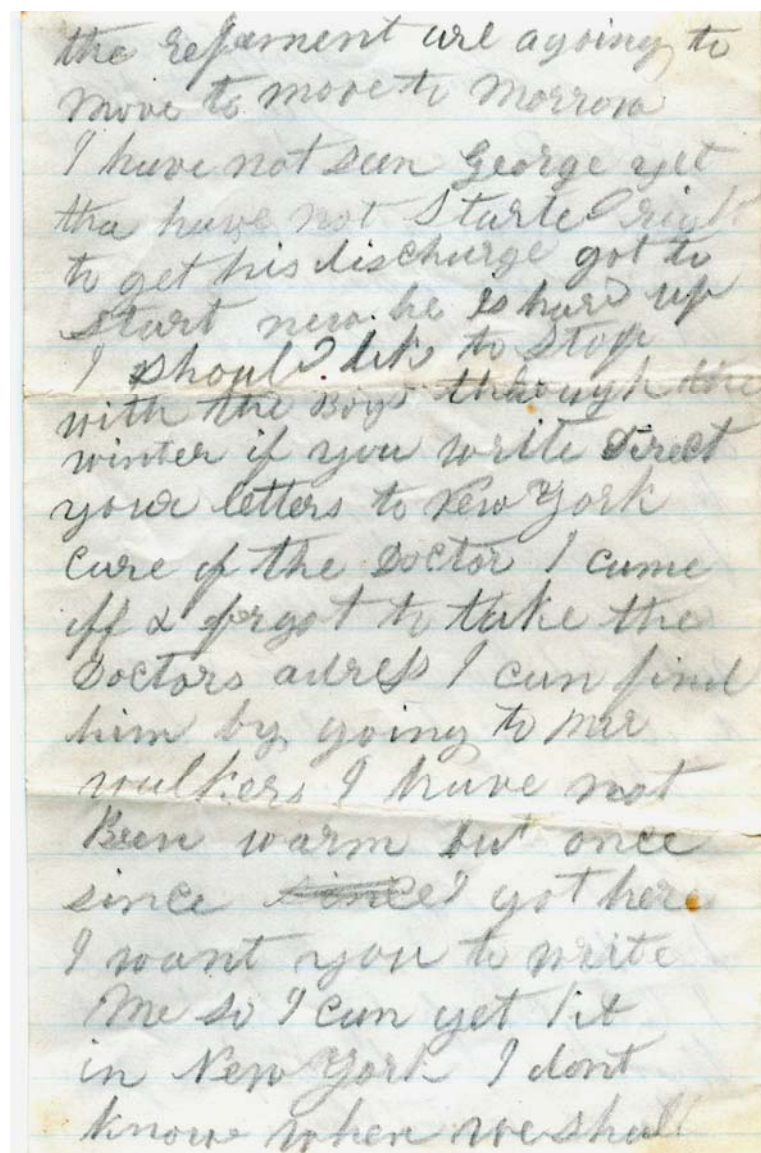 the regement are agoing to
move to move to Morrow
I have not sean George yet
tha have not Started right
to get his discharge got to
Start new. he is hard up
I should like to Stop
with the Boys through the
winter if you write Direct
your letters to New York
care of the Doctor I came
off & forgot to take the
Doctors adress I can find
him by going to Mr
walkers I have not
Been warm but once
since since I got here
I want you to write
Me so I can get it
in New York I dont
know when we shall